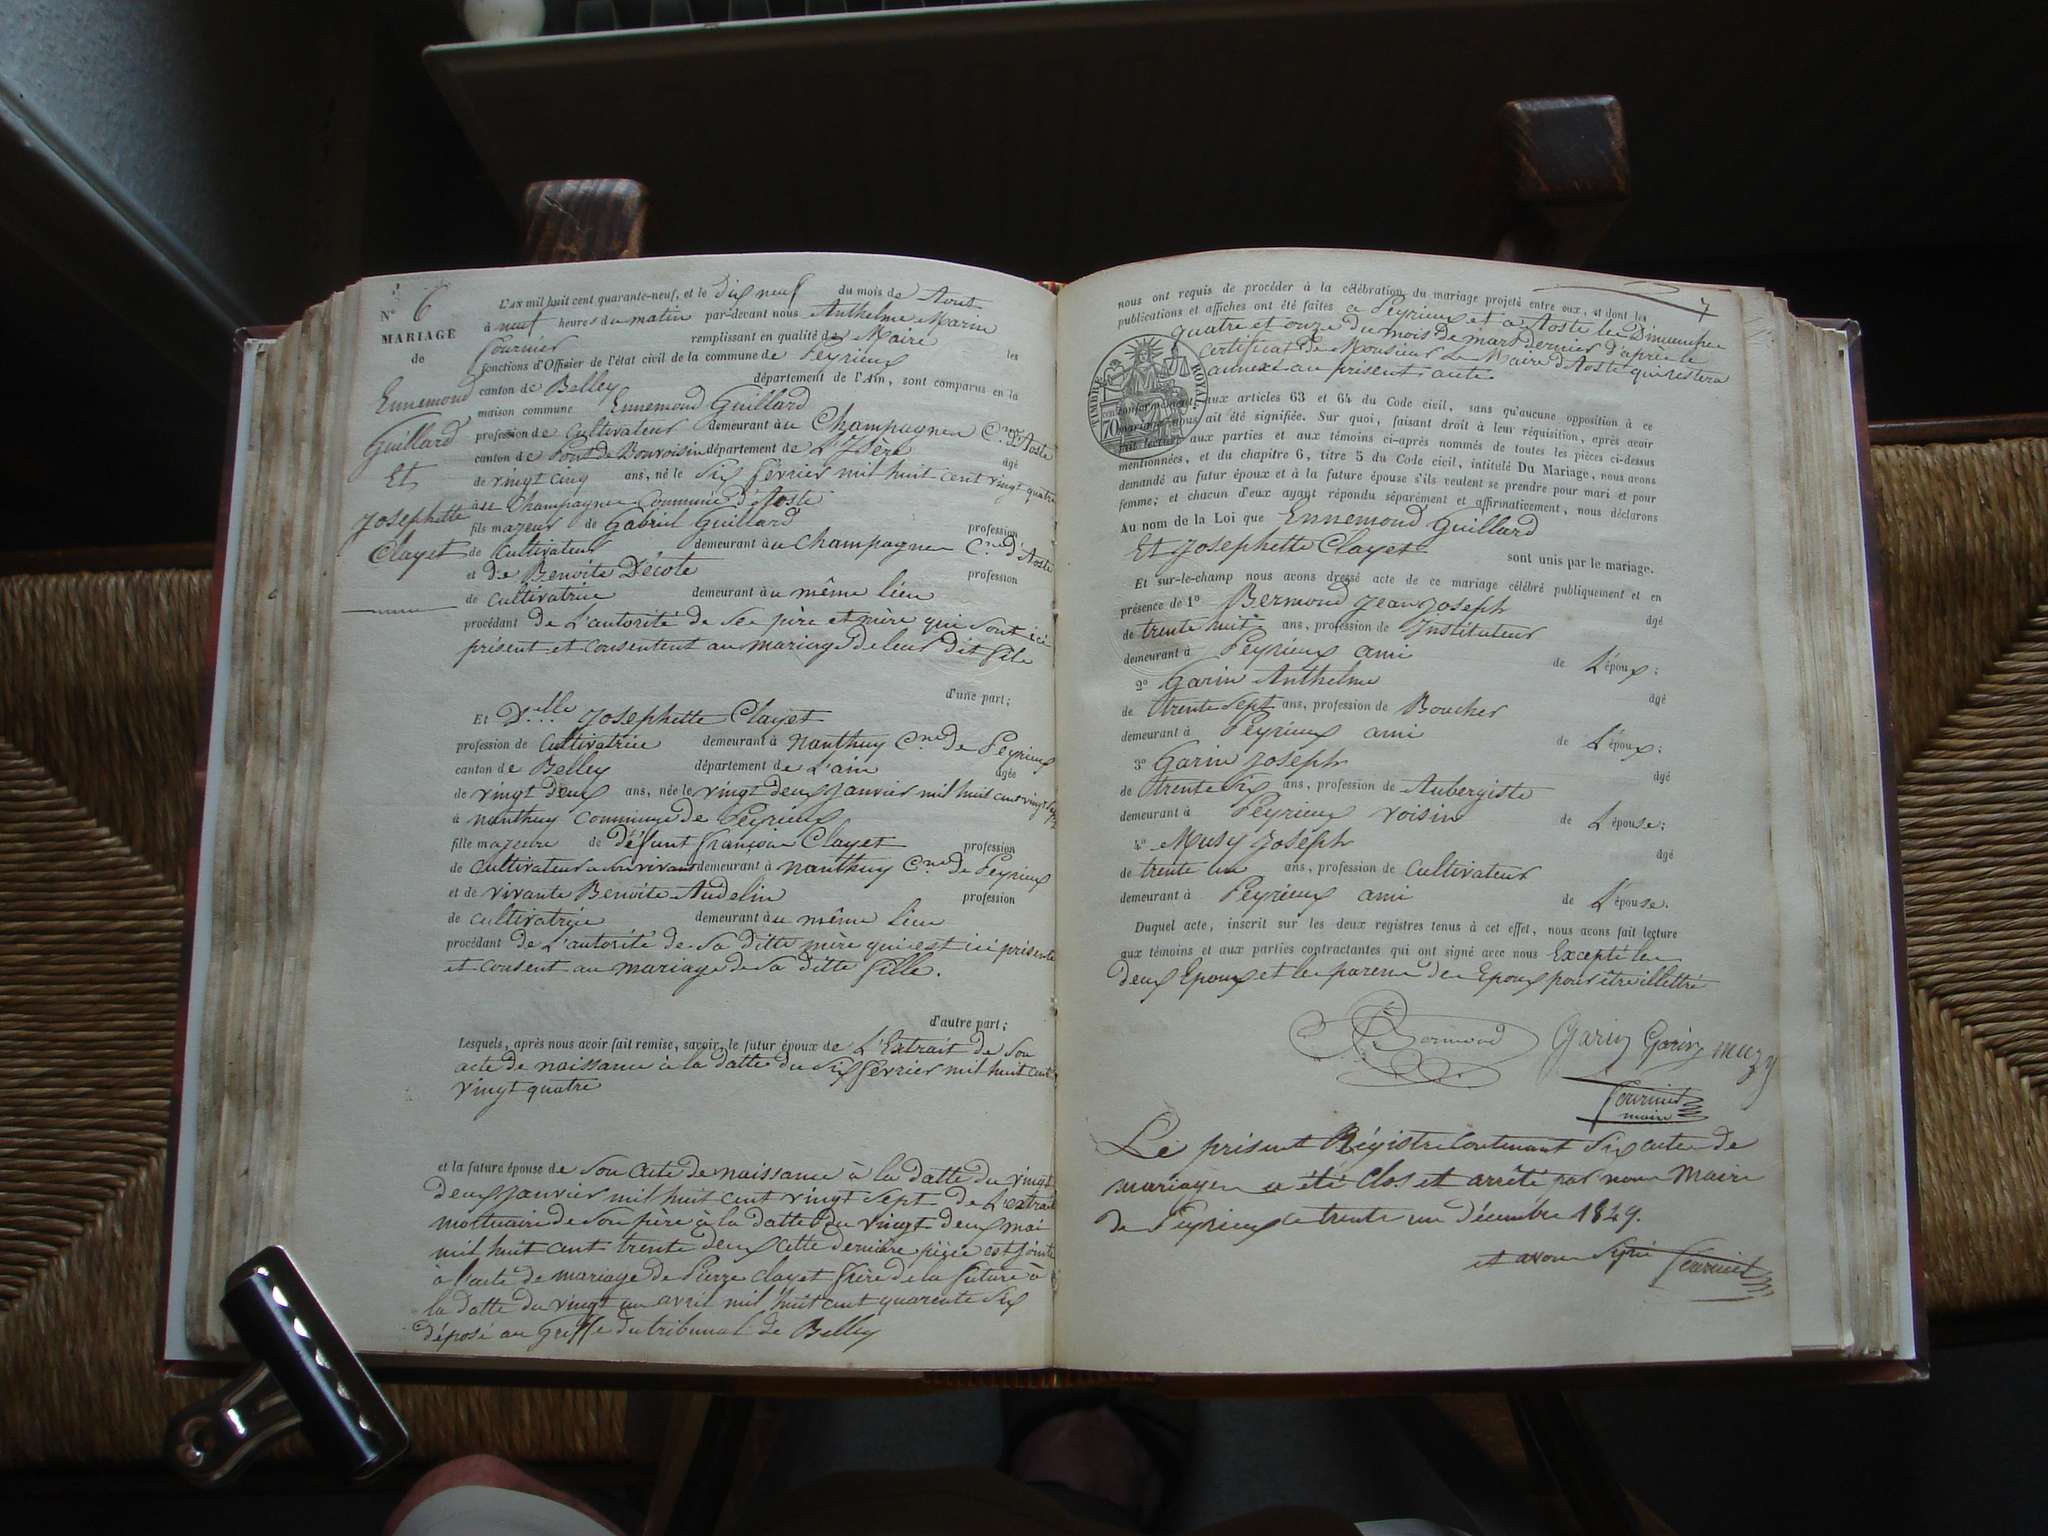 N° 6
MARIAGE
de
Ennemond
Guillard
Et
Josephette
Clayet
L'AN mil huit cent quarante-neuf, et le dix neuf du mois de Aout
à neuf heures du matin par-devant nous Anthelme Marin
Fournier remplissant en qualité de Maire les
fonctions d'Officier de l'état civil de la commune de Peyrieux
canton de Belley département de l'AIN, sont comparus en la
maison commune Ennemond Guillard
profession de Cultivateur demeurant à Champagne Cne d'Aoste
canton de Pont de Bonvoisin département de L'Isère âgé
de vingt cinq ans, né le six février mil huit cent vingt quatre
à Champagne Commune d'Aoste
fils majeur de Gabriel Guillard profession
de Cultivateur demeurant à Champagne Cne d'Aoste
et de Benoite Décote profession
de cultivatrice demeurant au même lieu
procédant de L'autorité de Ses père et mère qui sont ici
présent et consentent au mariage de leur dit fils
d'une part;
Et Delle Josephette Clayet
profession de Cultivatrice demeurant à Nanthuy Cne de Peyrieux
canton de Belley département de L'ain âgée
de vingt deux ans, née le vingt deux janvier mil huit cent vingt sept
à Nanthuy Commune de Peyrieux
fille majeure de défunt françois Clayet profession
de Cultivateur a son vivant demeurant à Nanthuy Cne de Peyrieux
et de vivante Benoite Andelin profession
de cultivatrice demeurant au même lieu
procédant de L'autorité de Sa ditte mère qui est ici présente
et consent au mariage de Sa ditte fille.
d'autre part;
Lesquels, après nous avoir fait remise, savoir, le futur époux de L'Extrait de Son
acte de naissance à la datte du Six février mil huit cent
vingt quatre
et la future épouse de Son acte de naissance à la datte du vingt
deux Janvier mil huit cent vingt sept de L'extrait
mortuaire de Son père à la datte du vingt deux mai
mil huit cent trente deux cette dernière pièce est jointe
à l'acte de mariage de Pierre Clayet frère de la future à
la datte du vingt un avril mil huit cent quarente Six
déposé au Greffe du tribunal de Belley
7
nous ont requis de procéder à la célébration du mariage projeté entre eux, et dont les
publications et affiches ont été faites à Peyrieux et à Aoste les Dimanches
quatre et onze du mois de mars dernier d'après le
Certificat de Monsieur Le Maire d'Aoste qui restera
annexé au présent acte
TIMBRE ROYAL
70
en conformément aux articles 63 et 64 du Code civil, sans qu'aucune opposition à ce
mariage nous ait été signifiée. Sur quoi, faisant droit à leur réquisition, après avoir
fait lecture aux parties et aux témoins ci-après nommés de toutes les pièces ci-dessus
mentionnées, et du chapitre 6, titre 5 du Code civil, intitulé Du Mariage, nous avons
demandé au futur époux et à la future épouse s'ils veulent se prendre pour mari et pour
femme; et chacun d'eux ayant répondu séparément et affirmativement, nous déclarons
Au nom de la Loi que Ennemond Guillard
Et Josephette Clayet sont unis par le mariage.
Et sur-le-champ nous avons dressé acte de ce mariage célébré publiquement et en
présence de 1° Bermond Jean Joseph âgé
de trente huit ans, profession de Instituteur
demeurant à Peyrieux ami de L'époux;
2° Garin Anthelme âgé
de trente sept ans, profession de Boucher
demeurant à Peyrieux ami de L'époux;
3° Garin Joseph âgé
de trente six ans, profession de Aubergiste
demeurant à Peyrieux voisin de L'épouse;
4° Musy Joséph âgé
de trente un ans, profession de Cultivateur
demeurant à Peyrieux ami de L'épouse.
Duquel acte, inscrit sur les deux registres tenus à cet effet, nous avons fait lecture
aux témoins et aux parties contractantes qui ont signé avec nous Excepté les
deux Epoux et les parens des Epoux pour être illettré
Bermond Garin Garin muzy
Fournier
maire
Le présent Régistre Contenant Six actes de
mariages a été Clos et arrêté par nous Maire
de Peyrieux ce trente un décembre 1849.
et avons Signé Fournier